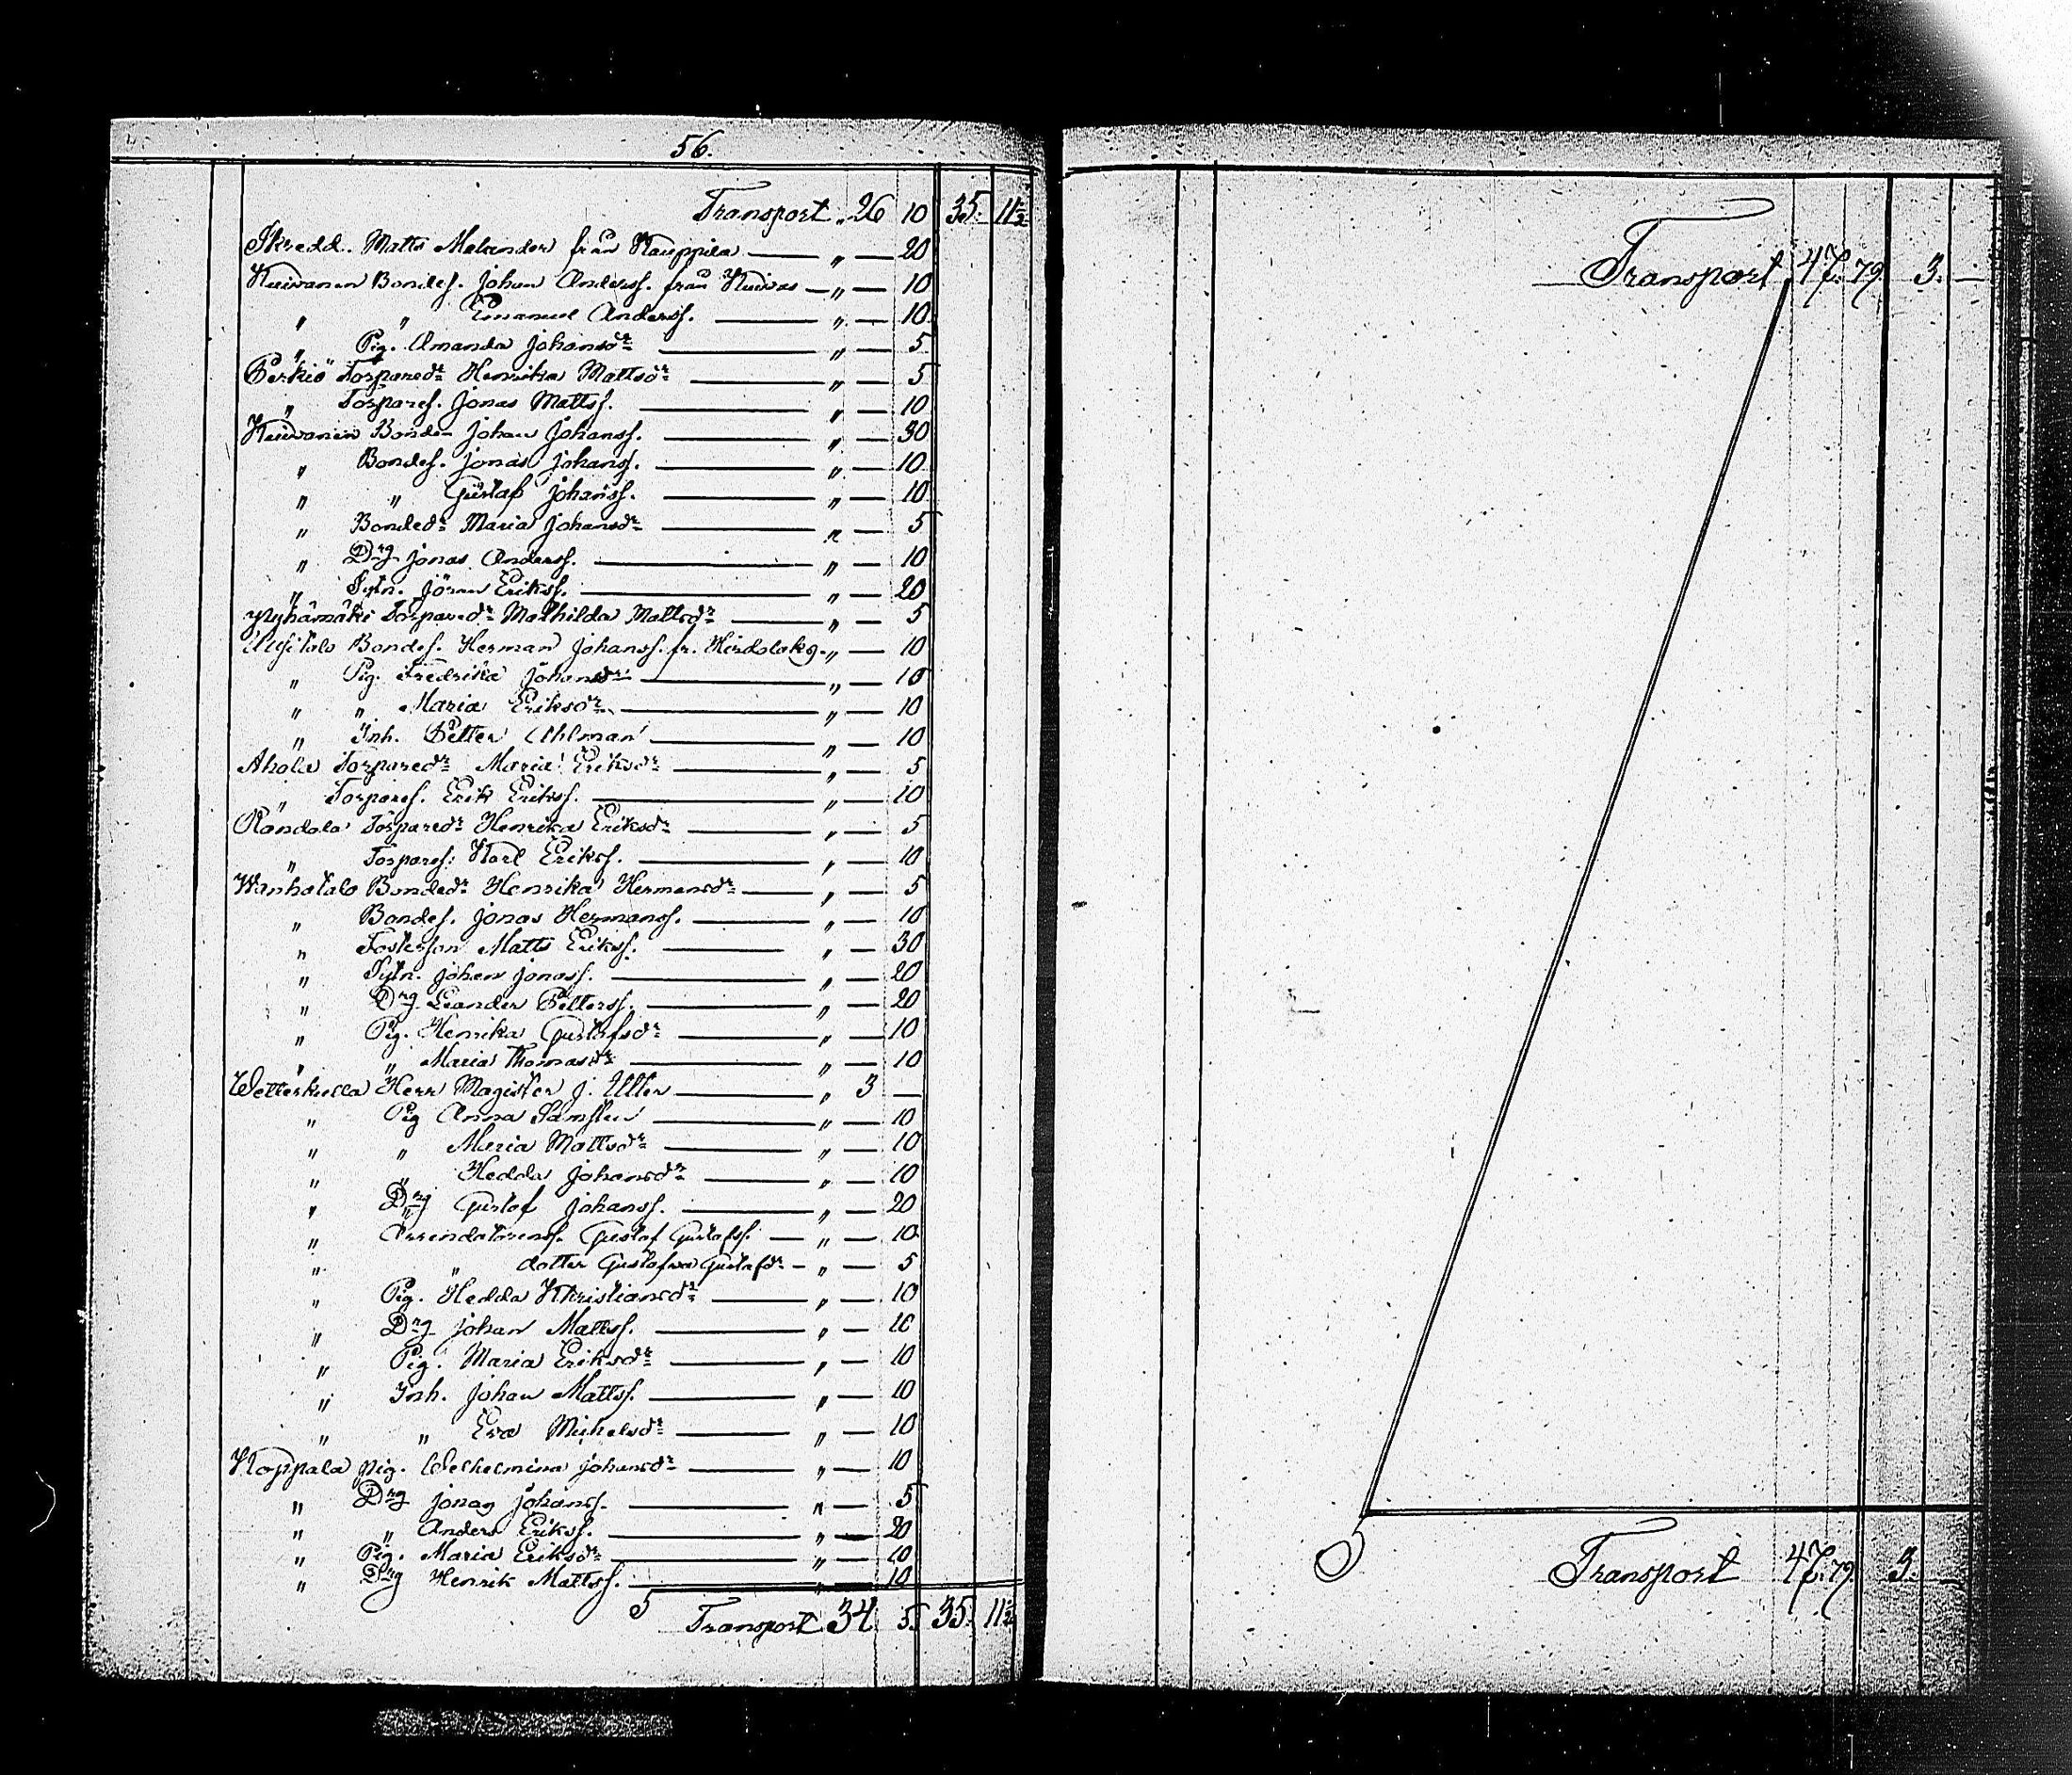 56.
Transport „ 26 10 35. 11½
Skredd. Matts Melander från Kauppila — „ — 20
Kuivanen Bondes. Johan Anderss. från Kuivas — „ — 10
„ „ Emanuel Anderss. — „ — 10
„ Pig. Amanda Johansdr — „ — 5
Perkiö Torparedr Henrika Mattsdr — „ — 5
„ Torpares. Jonas Mattss. — „ — 10
Kuivanen Bonden Johan Johanss. — „ — 30
„ Bondes. Jonas Johanss. — „ — 10
„ „ Gustaf Johanss. — „ — 10
„ Bondedr Maria Johansdr — „ — 5
„ Drg Jonas Anderss. — „ — 10
„ Sytn. Jöran Erikss. — „ — 20
Nyhämäki Torparedr Mathilda Mattsdr — „ — 5
Uusitalo Bondes. Herman Johanss. fr. Hirdolakg. „ — 10
„ Pig. Fredrika Johansdr — „ — 10
„ „ Maria Eriksdr — „ — 10
„ Inh. Petter Ahlman — „ — 10
Ahola Torparedr Maria Eriksdr — „ — 5
„ Torpares. Erik Erikss. — „ — 10
Randala Torparedr Henrika Eriksdr — „ — 5
„ Torpares. Karl Erikss. — „ — 10
Wanhatalo Bondedr Henrika Hermansdr — „ — 5
„ Bondes. Jonas Hermanss. — „ — 10
„ Fosterson Matts Erikss. — „ — 30
„ Sytn. Johan Jonass. — „ — 20
„ Drg. Leander Petterss. — „ — 20
„ Pig. Henrika Gustafsdr — „ — 10
„ „ Maria Thomasdr — „ — 10
Wetterkulla Herr Magister J. Uller — „ 3 —
„ Pig Anna — „ — 10
„ „ Maria Mattsdr — „ — 10
„ „ Hedda Johansdr — „ — 10
„ Drg Gustaf Johanss. — „ — 20
„ Arrendatorens s. Gustaf Gustafss. — „ — 10
„ „ dotter Gustafva Gustafsdr — „ — 5
„ Pig. Hedda Khristiansdr — „ — 10
„ Drg Johan Mattss. — „ — 10
„ Pig. Maria Eriksdr — „ — 10
„ Inh. Johan Mattss. — „ — 10
„ „ Eva Michelsdr — „ — 10
Koppala Pig. Wilhelmina Johansdr — „ — 10
„ Drg Jonas Johanss. — „ — 5
„ „ Anders Erikss. — „ — 20
„ Pig. Maria Eriksdr — „ — 10
„ Drg Henrik Mattss. — „ — 10
Transport 34 5. 35. 11½
Transport 47. 79. 3. —
Transport 47. 79. 3. —